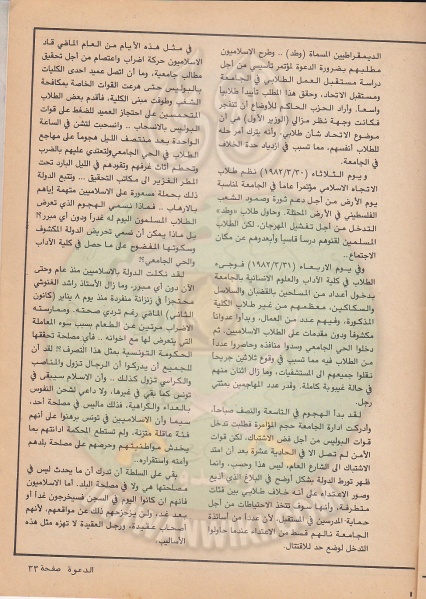 الديمقراطيين المسماة (وطد) .. وطرح الاسلاميون
مطلبهم بضرورة الدعوة لمؤتمر تأسيسي من أجل
دراسة مستقبل العمل الطلابي في الجامعة
ومستقبل الاتحاد، وحقق هذا المطلب تأييداً طلابياً
واسعاً. وأراد الحزب الحاكم للأوضاع أن تنفجر
فكانت وجهة نظر مزالي (الوزير الأول) هي أن
موضوع الاتحاد شأن طلابي، وأنه يترك أمر حله
للطلاب أنفسهم، مما تسبب في ازدياد حدة الخلاف
في الجامعة.
ويوم الثلاثاء (١٩٨٢/٣/٣٠) نظم طلاب
الاتجاه الاسلامي مؤتمراً عاماً في الجامعة لمناسبة
يوم الأرض من أجل دعم ثورة وصمود الشعب
الفلسطيني في الأرض المحتلة. وحاول طلاب «وطد»
التدخل من أجل تفشيل المهرجان، لكن الطلاب
المسلمين لقنوهم درساً قاسياً وأبعدوهم عن مكان
الاجتماع..
وفي يوم الاربعاء (١٩٨٢/٣/٣١) فوجىء
الطلاب في كلية الآداب والعلوم الانسانية بالجامعة
بدخول أعداد من المسلحين بالقضبان والسلاسل
والسكاكين، معظمهم من غير طلاب الكلية
المذكورة، وفيهم عدد من العمال، وبدأوا عدواناً
مكشوفاً ودون مقدمات على الطلاب الاسلاميين، ثم
دخلوا الحي الجامعي وسدوا منافذه وحاصروا عدداً
من الطلاب فيه مما تسبب في وقوع ثلاثين جريحاً
نقلوا جميعهم الى المستشفيات، وما زال اثنان منهم
في حالة غيبوبة كاملة. وقدر عدد المهاجمين بمئتي
رجل.
لقد بدأ الهجوم في التاسعة والنصف صباحاً،
وأدركت ادارة الجامعة حجم المؤامرة فطلبت تدخل
قوات البوليس من أجل فض الاشتباك، لكن قوات
الأمن لم تصل الا في الحادية عشرة بعد أن امتد
الاشتباك الى الشارع العام، ليس هذا وحسب، وانما
ظهر تورط الدولة بشكل أوضح في البلاغ الذي أذيع
وصور الاعتداء على أنه خلاف طلابي بين فئات
متطرفة، وأنها سوف تتخذ الاحتياطات من أجل
حماية المدرسين في المستقبل، لأن عدداً من أساتذة
الجامعة نالهم قسط من الاعتداء عندما حاولوا
التدخل لوضع حد للاقتتال.
في مثل هذه الأيام من العام الماضي قاد
الاسلاميون حركة اضراب واعتصام من أجل تحقيق
مطالب جامعية، وما أن اتصل عميد احدى الكليات
بالبوليس حتى هرعت القوات الخاصة بمكافحة
الشغب وطوقت مبنى الكلية، فأقدم بعض الطلاب
المتحمسين على احتجاز العميد للضغط على قوات
البوليس بالانسحاب .. وانسحبت لتشن في الساعة
الواحدة بعد منتصف الليل هجوماً على مهاجع
الطلاب في الحي الجامعي ولتعتدي عليهم بالضرب
وتحطم أثاث غرفهم وتقودهم في الليل البارد تحت
المطر الغزير الى مكاتب التحقيق .. وتتبع الدولة
ذلك بحملة مسعورة على الاسلاميين متهمة إياهم
بالارهاب .. فماذا نسمي الهجوم الذي تعرض
الطلاب المسلمون اليوم له غدراً ودون أي مبرر؟!
بل ماذا يمكن أن نسمي تحريض الدولة المكشوف
وسكوتها المفضوح على ما حصل في كلية الآداب
والحي الجامعي؟!
لقد نكلت الدولة بالاسلاميين منذ عام وحتى
الآن دون أي مبرر، وما زال الأستاذ راشد الغنوشي
محتجزاً في زنزانة منفردة منذ يوم ٨ يناير (كانون
الثاني) الماضي رغم تردي صحته، وممارسته
الاضراب مرتين عن الطعام بسبب سوء المعاملة
التي يتعرض لها مع اخوانه .. فأي مصلحة تحققها
الحكومة التونسية بمثل هذا التصرف؟! لقد آن
للجميع أن يدركوا أن الرجال تزول والمناصب
والكراسي تزول كذلك .. وأن الاسلام سيبقى في
تونس كما بقي في غيرها، ولا داعي لشحن النفوس
بالعداء والكراهية، فذلك ماليس في مصلحة أحد،
سيما وأن الاسلاميين في تونس برهنوا على أنهم
فئة عاقلة متزنة، ولم تستطع المحكمة ادانتهم بما
يخدش مواطنيتهم وحرصهم على مصلحة بلدهم
وأمنه واستقراره..
بقي على السلطة أن تدرك أن ما يحدث ليس في
مصلحتها هي ولا في مصلحة البلد. أما الاسلاميون
فانهم ان كانوا اليوم في السجن فسيخرجون غداً أو
بعد غد، ولن يزحزحهم ذلك عن مواقعهم، لأنهم
أصحاب عقيدة، ورجل العقيدة لا تهزه مثل هذه
الأساليب.
الدعوة صفحة ٢٣